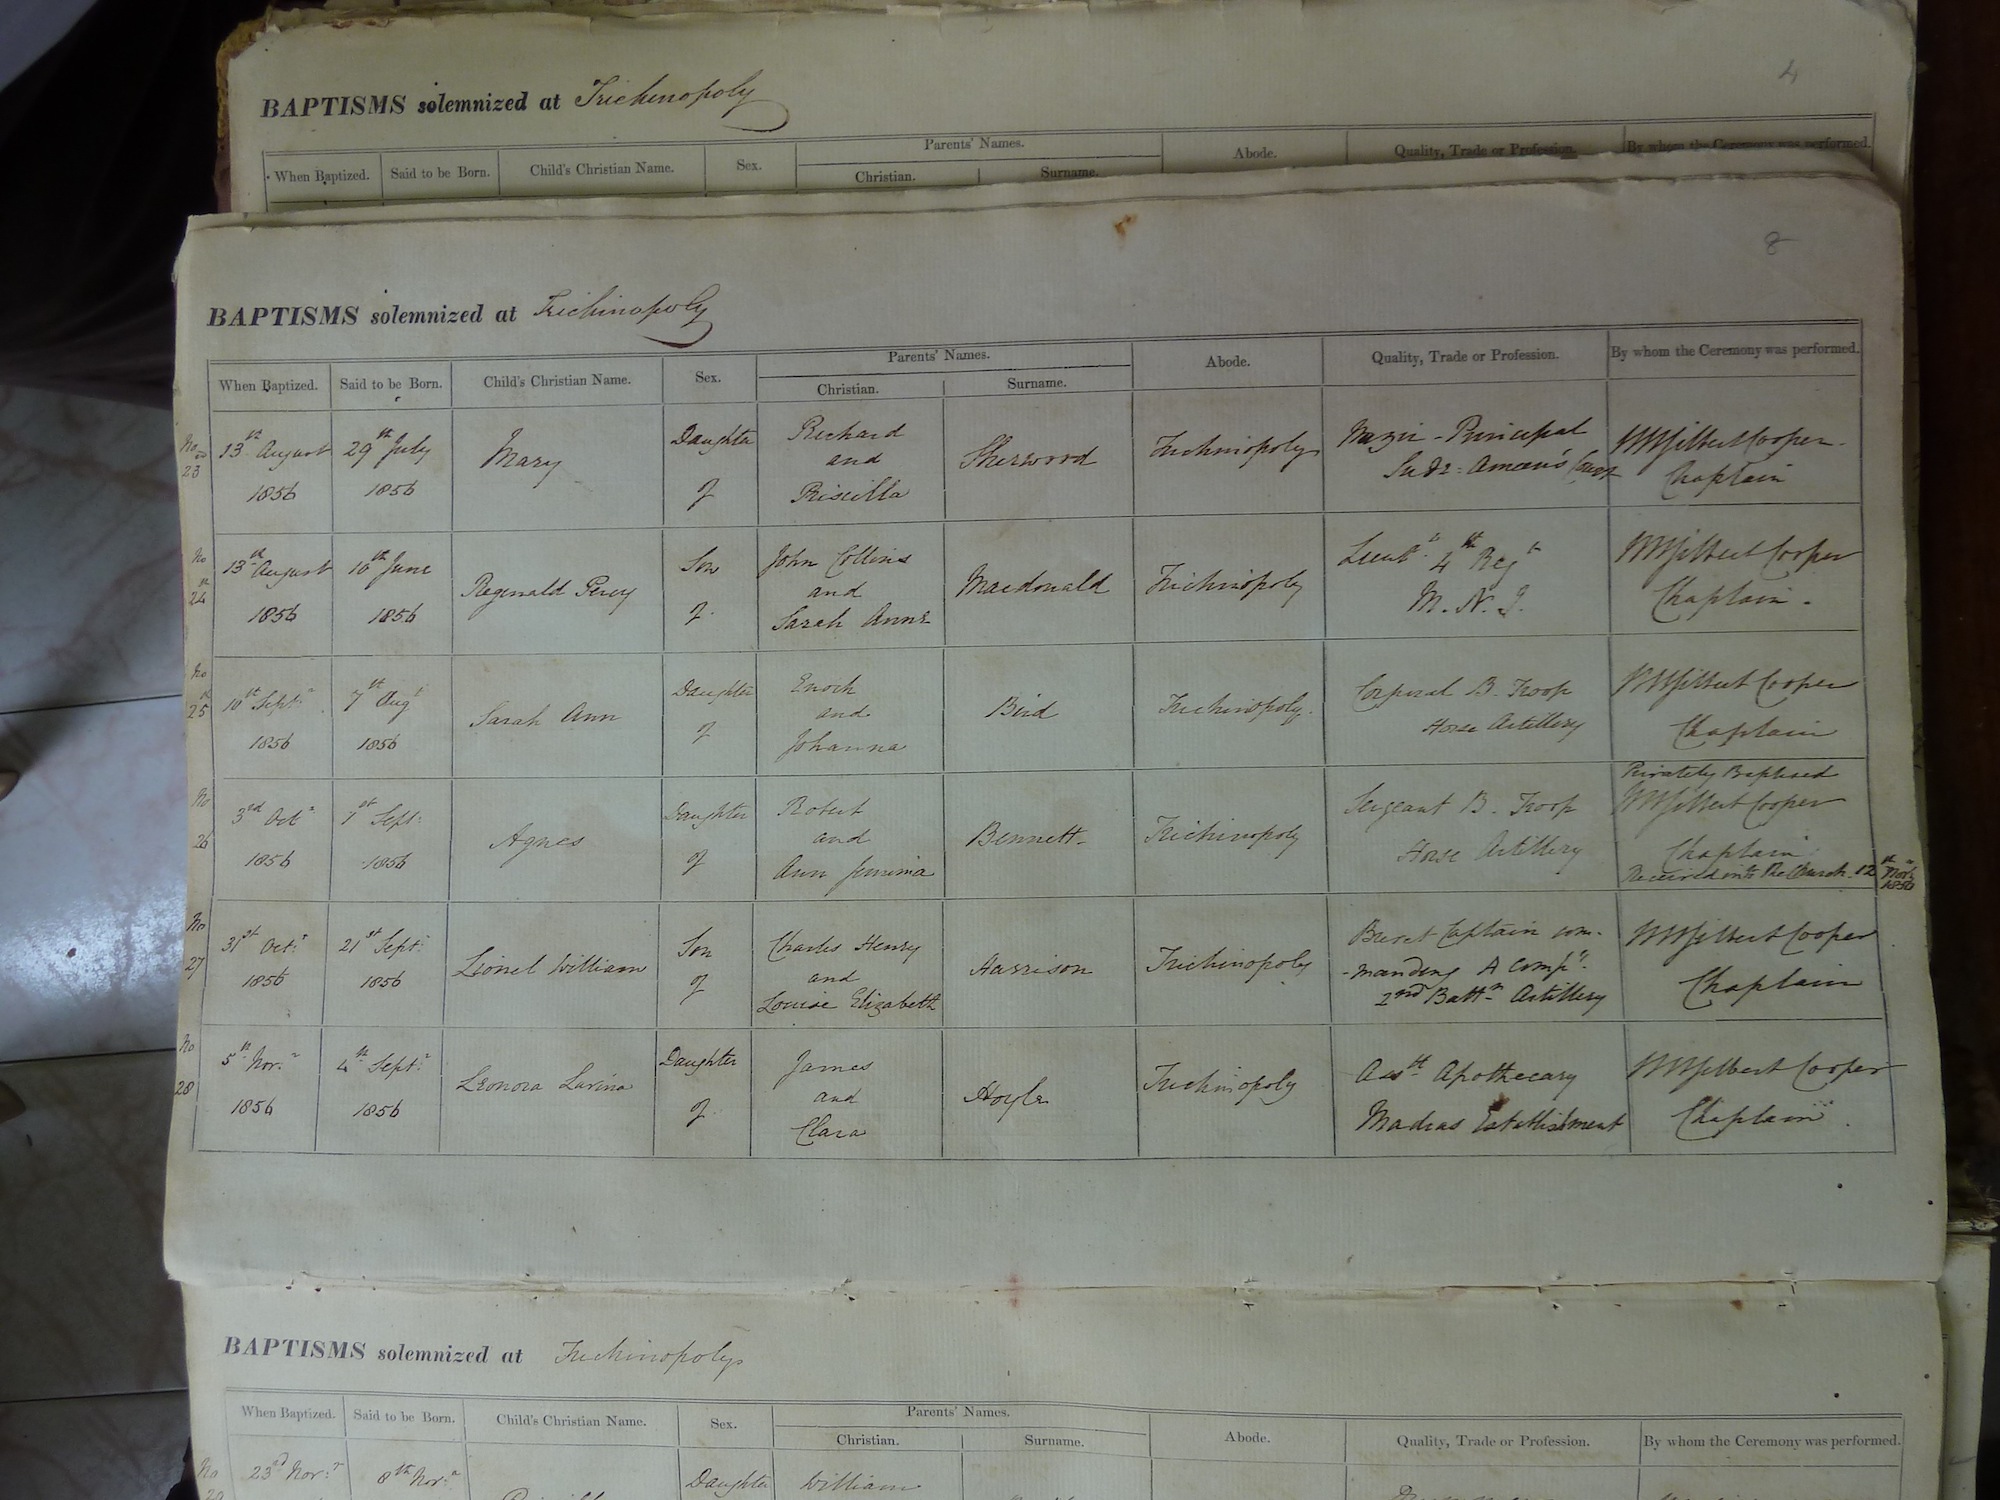 4
BAPTISMS solemnized at Trichinopoly
When Baptized. Said to be Born. Child's Christian Name. Sex. Parents' Names. Abode. Quality, Trade or Profession. By whom the Ceremony was performed.
Christian. Surname.
8
BAPTISMS solemnized at Trichinopoly
When Baptized. Said to be Born. Child's Christian Name. Sex. Parents' Names. Abode. Quality, Trade or Profession. By whom the Ceremony was performed.
Christian. Surname.
No 23
13th August 1856
29th July 1856
Mary
Daughter of
Richard and Priscilla
Sherwood
Trichinopoly
Nazir - Principal
Sudr: Ameen's Court
W Gilbert Cooper.
Chaplain
No 24
13th August 1856
16th June 1856
Reginald Percy
Son of
John Collins and Sarah Anne
Macdonald
Trichinopoly
Lieutt. 4th Regt
M. N. I.
W Gilbert Cooper
Chaplain.
No 25
10th Septr 1856
7th Augt 1856
Sarah Ann
Daughter of
Enoch and Johanna
Bird
Trichinopoly.
Corporal B. Troop
Horse Artillery
W Gilbert Cooper
Chaplain
No 26
3rd Octr 1856
1st Sept: 1856
Agnes
Daughter of
Robert and Ann Jemima
Bennett
Trichinopoly
Sergeant B. Troop
Horse Artillery
Privately Baptised
W Gilbert Cooper
Chaplain
Received into the Church 12th Novr 1856
No 27
31st Octr 1856
21st Septr 1856
Lionel William
Son of
Charles Henry and Louise Elizabeth
Harrison
Trichinopoly
Brevet Captain com-
-manding A Compy.
2nd Battn Artillery
W Gilbert Cooper
Chaplain
No 28
5th Novr 1856
4th Septr 1856
Leonora Lavina
Daughter of
James and Clara
Hoyle
Trichinopoly
Asst Apothecary
Madras Establishment
W Gilbert Cooper
Chaplain.
BAPTISMS solemnized at Trichinopoly
When Baptized. Said to be Born. Child's Christian Name. Sex. Parents' Names. Abode. Quality, Trade or Profession. By whom the Ceremony was performed.
Christian. Surname.
No
23rd Novr 8th Novr Daughter William